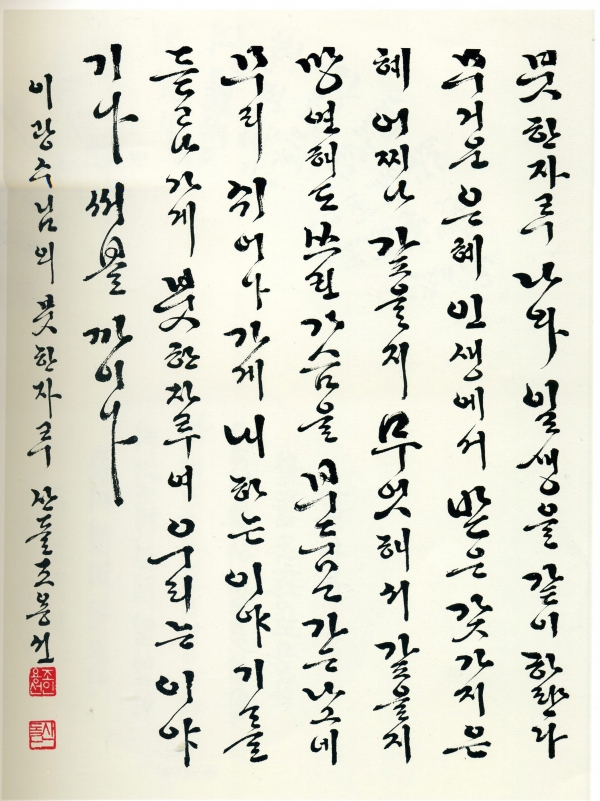 붓 한자루 나와 일생을 같이 하란다
무거운 은혜 인생에서 받은 갖가지 은
혜 어찌나 갚을지 무엇해서 갚을지
망연해도 쓰린 가슴을 부듬고 가는 나그네
무리 쉬어나 가게 내 하는 이야기를
듣고나 가게 붓 한자루여 우리는 이야
기나 써볼까이나
이광수님의 붓 한자루 산돌 조용선